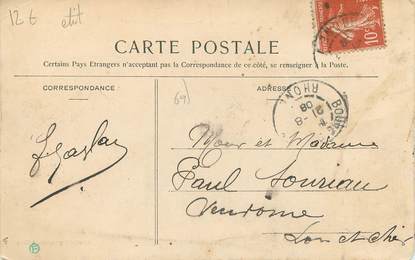 12 €
CARTE POSTALE
Certains Pays Etrangers n'acceptant pas la Correspondance de ce côté, se renseigner à la Poste.
CORRESPONDANCE
ADRESSE
69)
RHONE
08
10c
Monr et Madame
Paul Souriau
Vendome
Loir et Cher